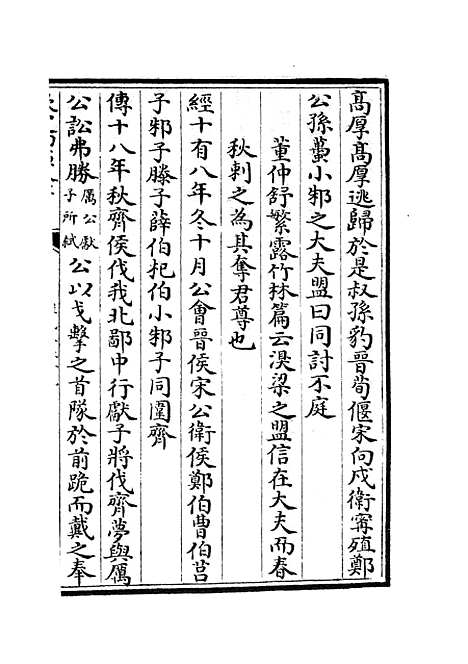 高厚高厚逃歸於是叔孫豹晉荀偃宋向戌衛甯殖鄭
公孫蠆小邾之大夫盟曰同討不庭
董仲舒繁露竹林篇云溴梁之盟信在大夫而春
秋刺之為其奪君尊也
經十有八年冬十月公會晉侯宋公衛侯鄭伯曹伯莒
子邾子滕子薛伯杞伯小邾子同圍齊
傳十八年秋齊侯伐我北鄙中行獻子將伐齊夢與厲
公訟弗勝厲公獻子所弑公以戈擊之首隊於前跪而戴之奉